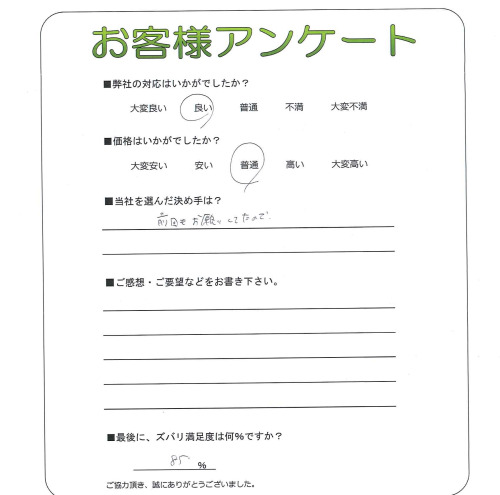 お客様アンケート
■弊社の対応はいかがでしたか？
大変良い 良い 普通 不満 大変不満
■価格はいかがでしたか？
大変安い 安い 普通 高い 大変高い
■当社を選んだ決め手は？
前回もお願いしてたので
■ご感想・ご要望などをお書き下さい。
■最後に、ズバリ満足度は何%ですか？
85 %
ご協力頂き、誠にありがとうございました。